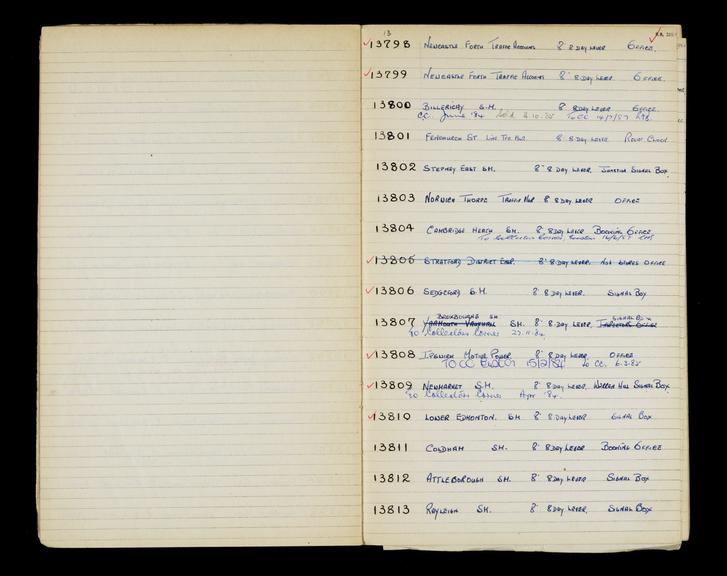 13
13798 Newcastle Forth Traffic Accounts 8" 8 Day Lever Office.
13799 Newcastle Forth Traffic Accounts 8" 8 Day Lever. Office.
13800 Billericay S.M. 8" 8 Day Lever Office.
C.C. June '84 Sold 2.10.85 To CC 14/7/87
13801 Fenchurch St. 8" 8 Day Lever Room Clock
13802 Stepney East SM. 8" 8 Day Lever. Junction Signal Box
13803 Norwich Thorpe 8" 8 Day Lever Office
13804 Cambridge Heath SM. 8" 8 Day Lever Booking Office.
To Collectors Corner, London
13805 Stratford District Engr. 8" 8 Day Lever. Office
13806 Sedgeford S.M. 8" 8 Day Lever. Signal Box
Broxbourne SM Signal Box
13807 Yarmouth Vauxhall SM. 8" 8 Day Lever, Inspectors Office
To Collectors Corner 27.11.84
13808 Ipswich Motive Power 8" 8 Day Lever Office
TO CC to CC. 6.3.85
13809 Newmarket S.M. 8" 8 Day Lever. Warren Hill Signal Box
To Collectors Corner Apr '84.
13810 Lower Edmonton. SM 8" 8 Day Lever Signal Box
13811 Coldham SM. 8" 8 Day Lever Booking Office
13812 Attleborough SM. 8" 8 Day Lever Signal Box
13813 Rayleigh SM. 8" 8 Day Lever. Signal Box